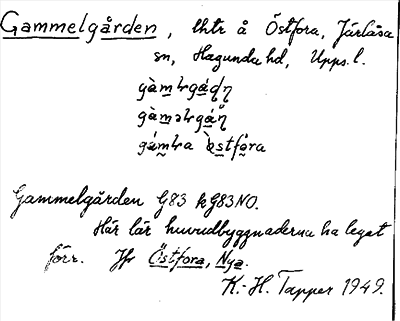 Gammelgården, lhtr å Östfora, Järlåsa
sn, Hagunda hd, Upps. l.
Gammelgården G83 k G83NO.
Här lär huvudbyggnaderna ha legat
förr. Jfr Östfora, Nya.
K.-H. Tapper 1949.